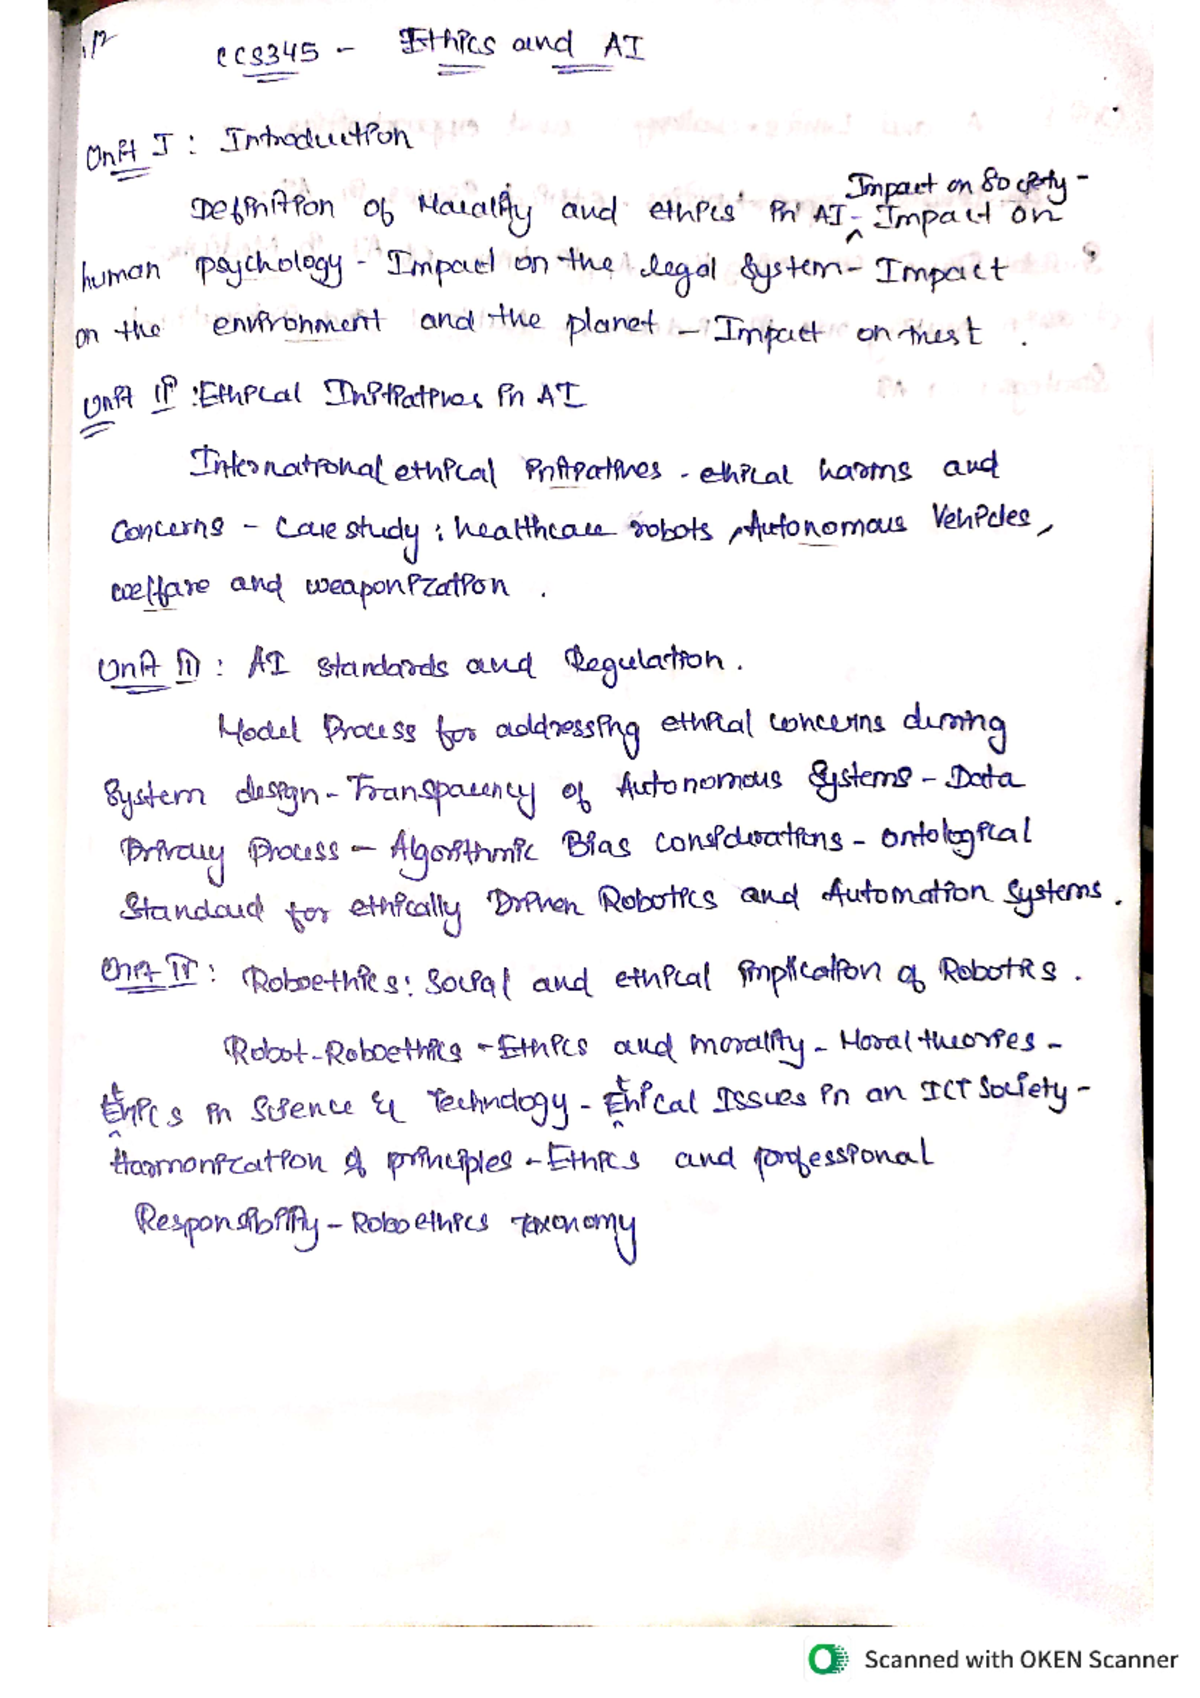 CCS345 - Ethics and AI
Unit I : Introduction
Impact on Society -
Definition of Morality and ethics in AI - Impact on
human psychology - Impact on the legal system - Impact
on the environment and the planet - Impact on trust .
Unit II : Ethical Initiatives in AI
International ethical initiatives - ethical harms and
concerns - Case study : healthcare robots , Autonomous Vehicles ,
welfare and weaponization .
Unit III : AI standards and Regulation .
Model Process for addressing ethical concerns during
System design - Transparency of Autonomous Systems - Data
Privacy Process - Algorithmic Bias considerations - Ontological
Standard for ethically Driven Robotics and Automation Systems .
Unit IV : Roboethics : Social and ethical implication of Robotics .
Robot - Roboethics - Ethics and morality - Moral theories -
Ethics in Science & Technology - Ethical Issues in an ICT Society -
Harmonization of principles - Ethics and professional
Responsibility - Roboethics Taxonomy
Scanned with OKEN Scanner